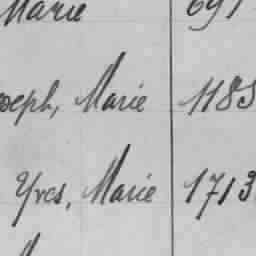 Marie 691
oseph, Marie 1185
Yves, Marie 1713